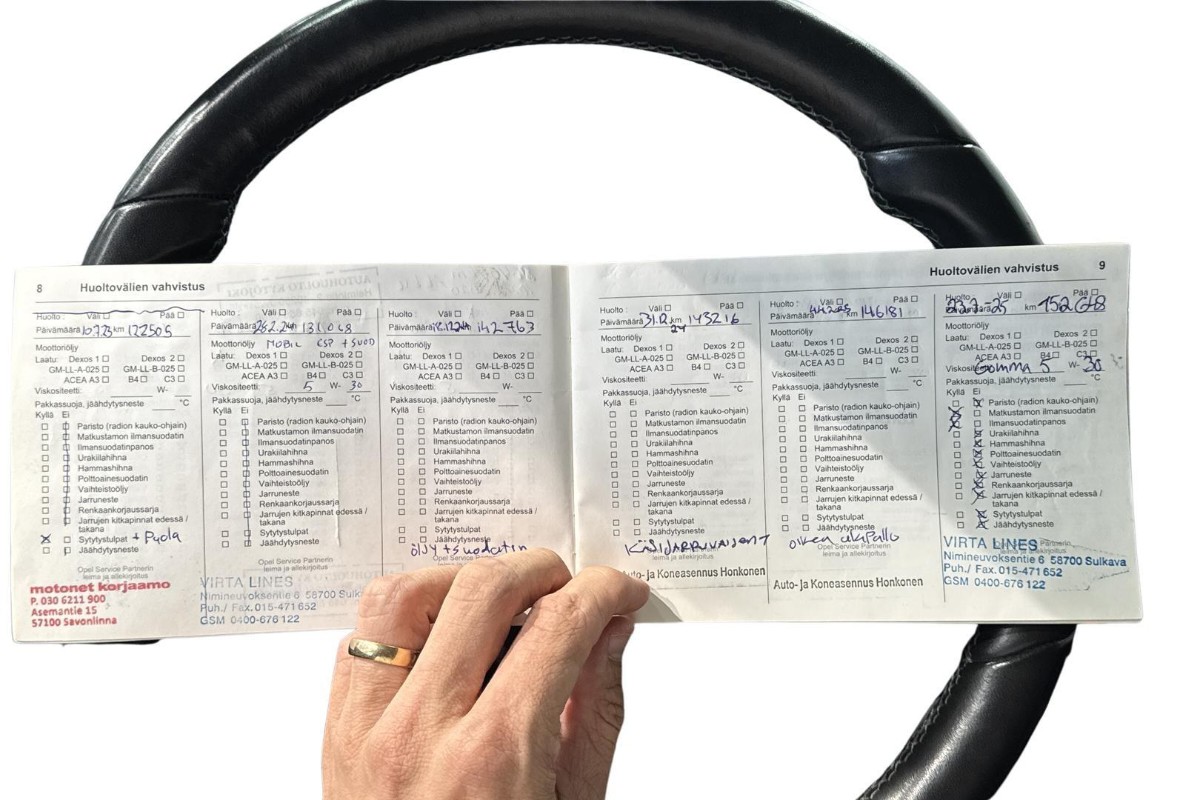 8 Huoltovälien vahvistus
Huolto: Väli Pää
Päivämäärä 10.7.23 km 122505
Moottoriöljy
Laatu: Dexos 1 Dexos 2
GM-LL-A-025 GM-LL-B-025
ACEA A3 B4 C3
Viskositeetti: W-
Pakkassuoja, jäähdytysneste °C
Kyllä Ei
Paristo (radion kauko-ohjain)
Matkustamon ilmansuodatin
Ilmansuodatinpanos
Urakiilahihna
Hammashihna
Polttoainesuodatin
Vaihteistoöljy
Jarruneste
Renkaankorjaussarja
Jarrujen kitkapinnat edessä /
takana
Sytytystulpat + Puola
Jäähdytysneste
Opel Service Partnerin
leima ja allekirjoitus
motonet korjaamo
P. 030 6211 900
Asemantie 15
57100 Savonlinna
Huolto: Väli Pää
Päivämäärä km 131048
Moottoriöljy MOBIL ESP + SUOD
Laatu: Dexos 1 Dexos 2
GM-LL-A-025 GM-LL-B-025
ACEA A3 B4 C3
Viskositeetti: 5 W- 30
Pakkassuoja, jäähdytysneste °C
Kyllä Ei
Paristo (radion kauko-ohjain)
Matkustamon ilmansuodatin
Ilmansuodatinpanos
Urakiilahihna
Hammashihna
Polttoainesuodatin
Vaihteistoöljy
Jarruneste
Renkaankorjaussarja
Jarrujen kitkapinnat edessä /
takana
Sytytystulpat
Jäähdytysneste
Opel Service Partnerin
leima ja allekirjoitus
VIRTA LINES
Nimineuvoksentie 6 58700 Sulk
Puh./ Fax. 015-471 652
GSM 0400-676 122
Huolto: Väli Pää
Päivämäärä 142-763
Moottoriöljy
Laatu: Dexos 1 Dexos 2
GM-LL-A-025 GM-LL-B-025
ACEA A3 B4 C3
Viskositeetti: W-
Pakkassuoja, jäähdytysneste °C
Kyllä Ei
Paristo (radion kauko-ohjain)
Matkustamon ilmansuodatin
Ilmansuodatinpanos
Urakiilahihna
Hammashihna
Polttoainesuodatin
Vaihteistoöljy
Jarruneste
Renkaankorjaussarja
Jarrujen kitkapinnat edessä /
takana
Sytytystulpat
Jäähdytysneste
öljy + suodatin
Opel Service Partnerin
Huoltovälien vahvistus 9
Huolto: Väli Pää
Päivämäärä 31.12 km 143216
24
Moottoriöljy
Laatu: Dexos 1 Dexos 2
GM-LL-A-025 GM-LL-B-025
ACEA A3 B4 C3
Viskositeetti: W-
Pakkassuoja, jäähdytysneste °C
Kyllä Ei
Paristo (radion kauko-ohjain)
Matkustamon ilmansuodatin
Ilmansuodatinpanos
Urakiilahihna
Hammashihna
Polttoainesuodatin
Vaihteistoöljy
Jarruneste
Renkaankorjaussarja
Jarrujen kitkapinnat edessä /
takana
Sytytystulpat
Jäähdytysneste
leima ja allekirjoitus
uto- ja Koneasennus Honkonen
Huolto: Väli Pää
Päivämäärä km 146181
Moottoriöljy
Laatu: Dexos 1 Dexos 2
GM-LL-A-025 GM-LL-B-025
ACEA A3 B4 C3
Viskositeetti: W-
Pakkassuoja, jäähdytysneste °C
Kyllä Ei
Paristo (radion kauko-ohjain)
Matkustamon ilmansuodatin
Ilmansuodatinpanos
Urakiilahihna
Hammashihna
Polttoainesuodatin
Vaihteistoöljy
Jarruneste
Renkaankorjaussarja
Jarrujen kitkapinnat edessä /
takana
Sytytystulpat
Jäähdytysneste
oikea alapallo
Opel Service Partnerin
leima ja allekirjoitus
Auto- ja Koneasennus Honkonen
Huolto: Väli Pää
23.7-25 km 152648
Moottoriöljy
Laatu: Dexos 1 Dexos 2
GM-LL-A-025 GM-LL-B-025
ACEA A3 B4 C3
5 W- 30
Pakkassuoja, jäähdytysneste °C
Kyllä Ei
Paristo (radion kauko-ohjain)
Matkustamon ilmansuodatin
Ilmansuodatinpanos
Urakiilahihna
Hammashihna
Polttoainesuodatin
Vaihteistoöljy
Jarruneste
Renkaankorjaussarja
Jarrujen kitkapinnat edessä /
takana
Sytytystulpat
Jäähdytysneste
VIRTA LINES
Nimineuvoksentie 6 58700 Sulkava
Puh./ Fax. 015-471 652
GSM 0400-676 122